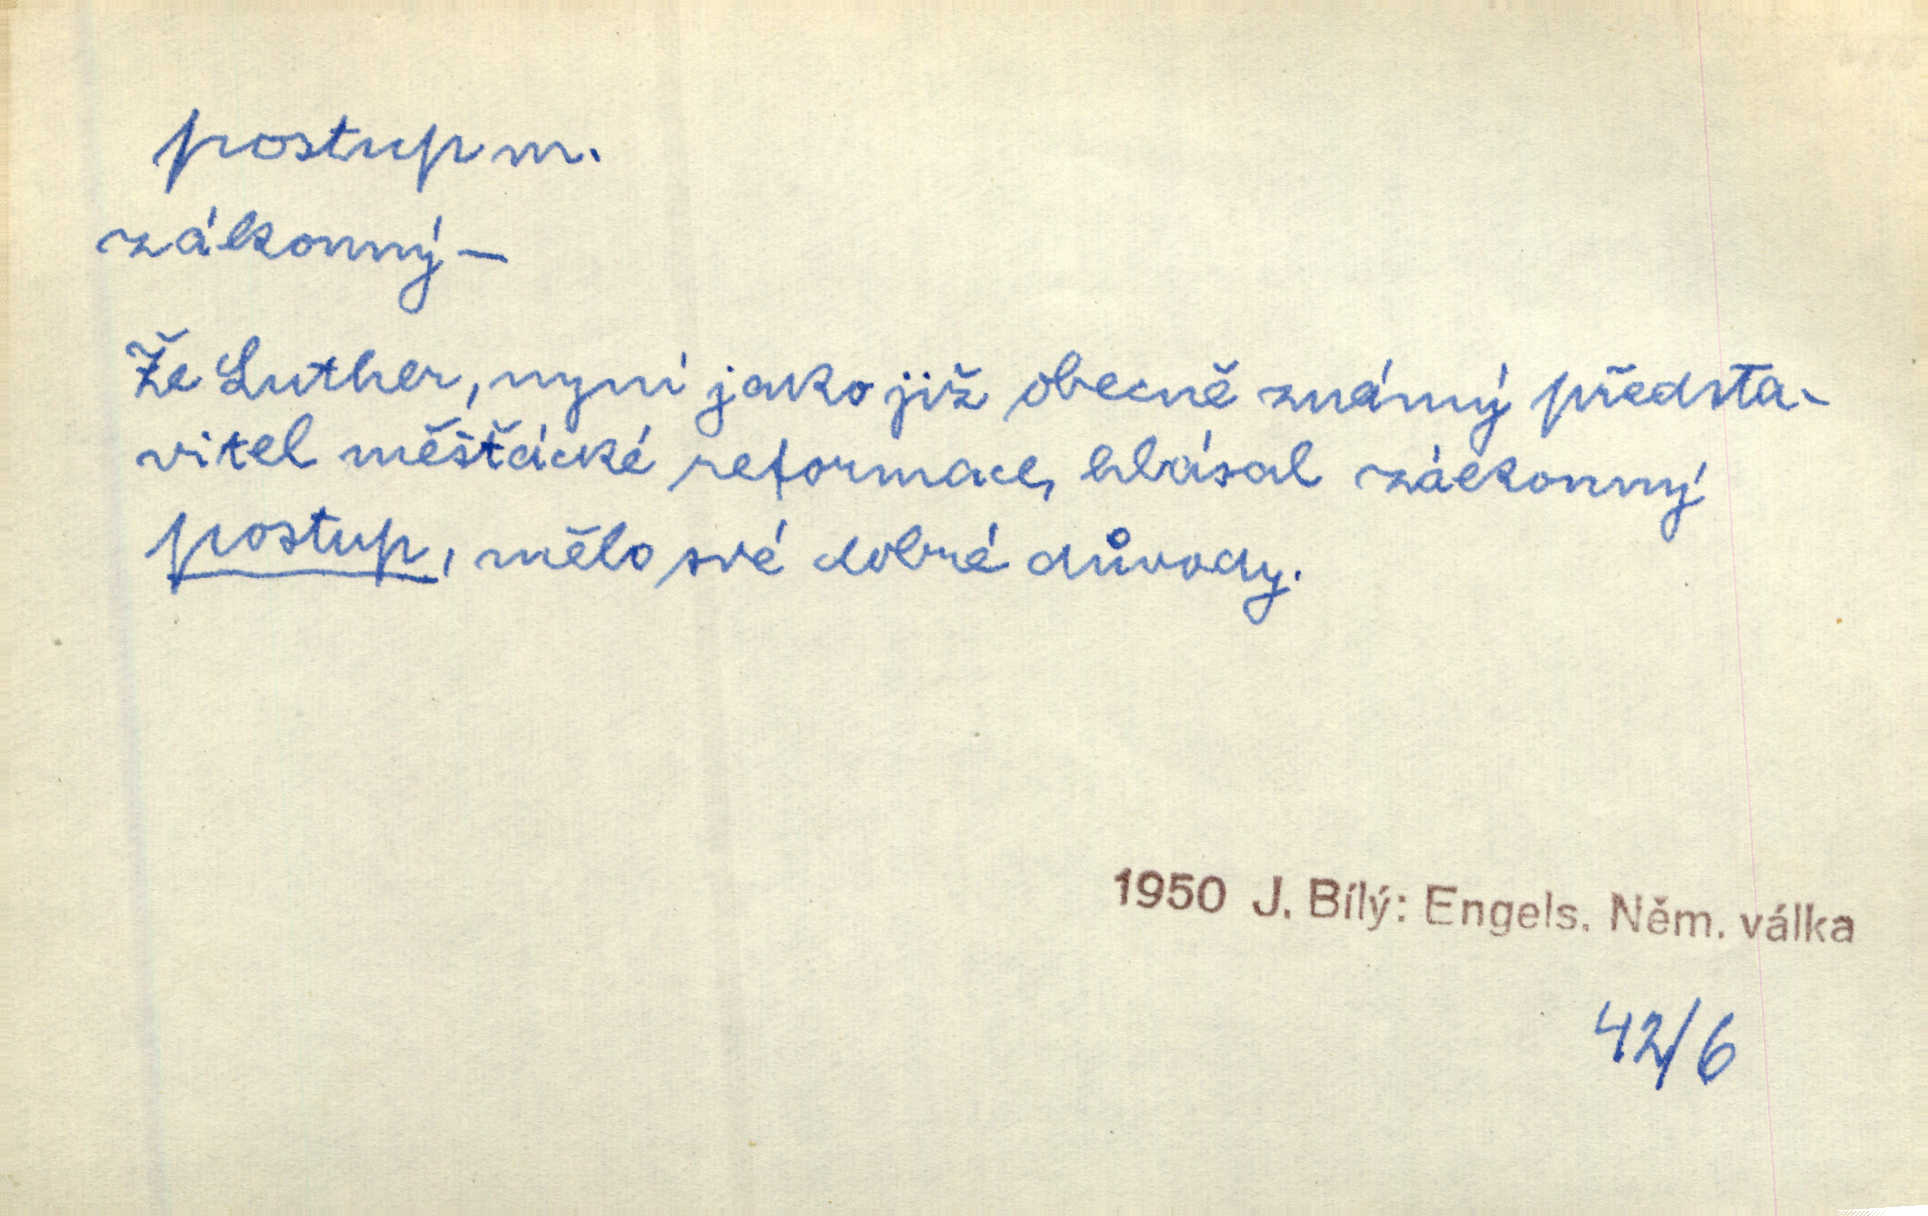 postup m.
zákonný —
Že Luther, nyní jako již obecně známý předsta-
vitel měšťácké reformace, hlásal zákonný
postup, mělo své dobré důvody.
1950 J. Bílý: Engels. Něm. válka
42/6